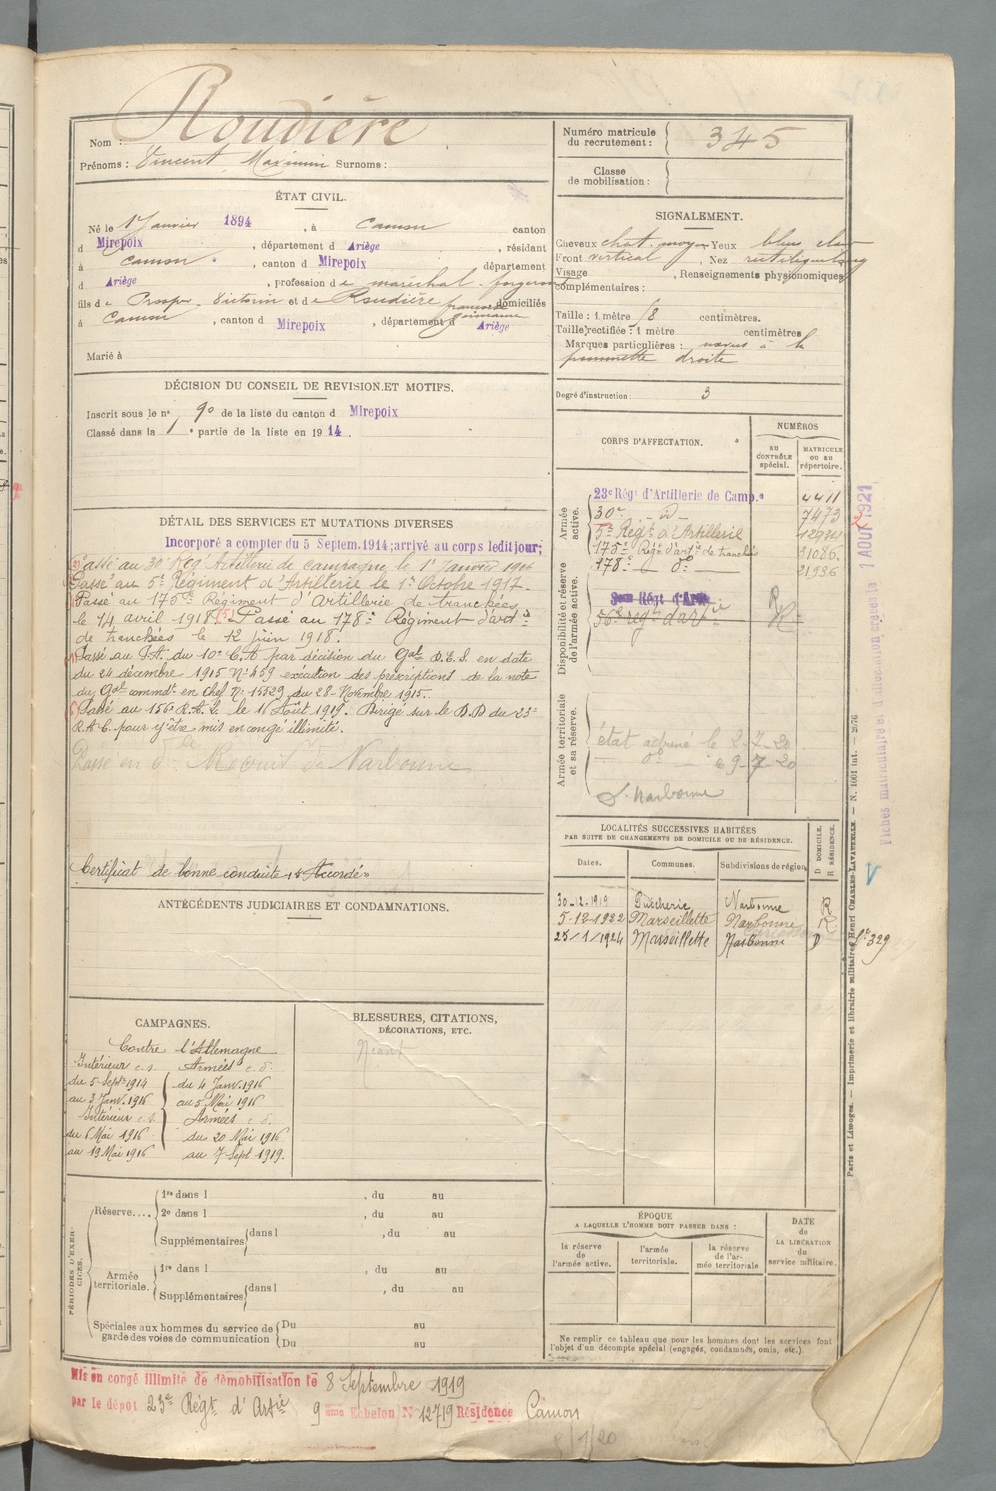 Nom : Roudière
Prénoms : Vincent Maximin Surnoms :
ÉTAT CIVIL.
Né le 1er Janvier 1894, à Camon canton
d Mirepoix, département d Ariège, résidant
à Camon, canton d Mirepoix département
d Ariège, profession de maréchal-forgeron
fils de Prosper Victorin et de Roudière françoise germaine domiciliés
à Camon, canton d Mirepoix, département d Ariège
Marié à
DÉCISION DU CONSEIL DE REVISION ET MOTIFS.
Inscrit sous le n° 90 de la liste du canton d Mirepoix
Classé dans la 1e partie de la liste en 1914.
DÉTAIL DES SERVICES ET MUTATIONS DIVERSES
Incorporé a compter du 5 Septem. 1914; arrivé au corps ledit jour;
Passé au 30e Rég. Artillerie de campagne le 1er Janvier 1916
Passé au 5e Régiment d'Artillerie le 1er Octobre 1917.
Passé au 175e Régiment d'Artillerie de tranchées
le 14 avril 1918. (5) Passé au 178e Régiment d'artie
de tranchées le 12 juin 1918.
Passé au P.A. du 10e C.A par décision du Gal D.E.S. en date
du 24 décembre 1915 N° 459 exécution des prescriptions de la note
du Gal commdt en chef N° 15529 du 28 Novembre 1915.
Passé au 156 R.A.L. le 11 Août 1919. Dirigé sur le D.D du 23e
R.A.C. pour y être mis en congé illimité.
Passé en de Recrut de Narbonne
Certificat de bonne conduite "Accordé"
ANTÉCÉDENTS JUDICIAIRES ET CONDAMNATIONS.
CAMPAGNES.
Contre l'Allemagne
Intérieur c.s. Armées c.d.
du 5 Septe 1914 du 4 Janv. 1916
au 3 Janv. 1916 au 5 Mai 1916
Intérieur c.s. Armées c.d.
du 6 Mai 1916 du 20 Mai 1916
au 19 Mai 1916 au 7 Sept 1919.
BLESSURES, CITATIONS,
DÉCORATIONS, ETC.
Néant
PÉRIODES D'EXERCICES.
Réserve.... 1re dans l , du au
2e dans l , du au
Supplémentaires dans l , du au
Armée territoriale. 1re dans l , du au
Supplémentaires dans l , du au
Spéciales aux hommes du service de garde des voies de communication Du au
Du au
Mis en congé illimité de démobilisation le 8 Septembre 1919
par le dépôt 23e Régt d'Artie 9 ème Echelon N° 12719 Résidence Camon
Numéro matricule
du recrutement : 345
Classe
de mobilisation :
SIGNALEMENT.
Cheveux chat. moyen Yeux bleus clair
Front vertical, Nez rectiligne long
Visage , Renseignements physionomiques
complémentaires :
Taille : 1 mètre 78 centimètres.
Taille rectifiée : 1 mètre centimètres
Marques particulières : naevus à la
pommette droite
Degré d'instruction : 3
CORPS D'AFFECTATION.
NUMÉROS
AU CONTRÔLE spécial.
MATRICULE OU AU répertoire.
Armée active.
23e Régt d'Artillerie de Camp.e 4411
30e - d° - 7473
5e Régt d'Artillerie 12974
175e Régt d'artie de tranchée 11086.
178e - d° - 21936
Disponibilité et réserve de l'armée active.
56e régt d'artie R
Armée territoriale et sa réserve.
état adressé le 2-7-20
d° le 9-7-20
S. Narbonne
LOCALITÉS SUCCESSIVES HABITÉES
PAR SUITE DE CHANGEMENTS DE DOMICILE OU DE RÉSIDENCE.
Dates. Communes. Subdivisions de région D DOMICILE. R RÉSIDENCE.
30-12-1919 Puichéric Narbonne R
5-12-1922 Marseillette Narbonne R
25/1/1924 Marseillette Narbonne D Ltr 329
ÉPOQUE
A LAQUELLE L'HOMME DOIT PASSER DANS :
la réserve de l'armée active.
l'armée territoriale.
la réserve de l'armée territoriale
DATE de LA LIBÉRATION du service militaire.
Ne remplir ce tableau que pour les hommes dont les services font
l'objet d'un décompte spécial (engagés, condamnés, omis, etc.)
Paris et Limoges. — Imprimerie et librairie militaires Henri CHARLES-LAVAUZELLE. — N. 1001 int. — 2076
Fiches matriculaire et d'affectation créées le 1 AOUT 1921